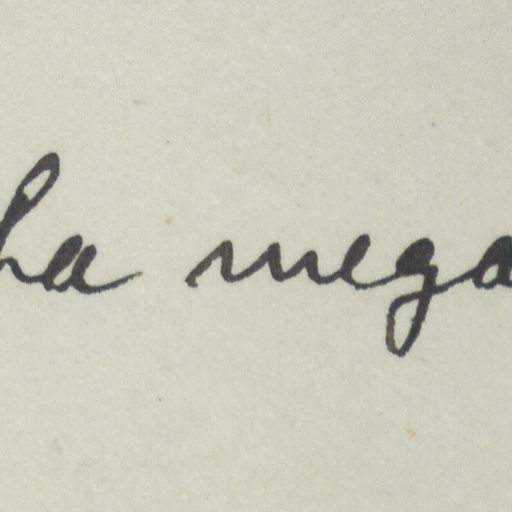 ha mega